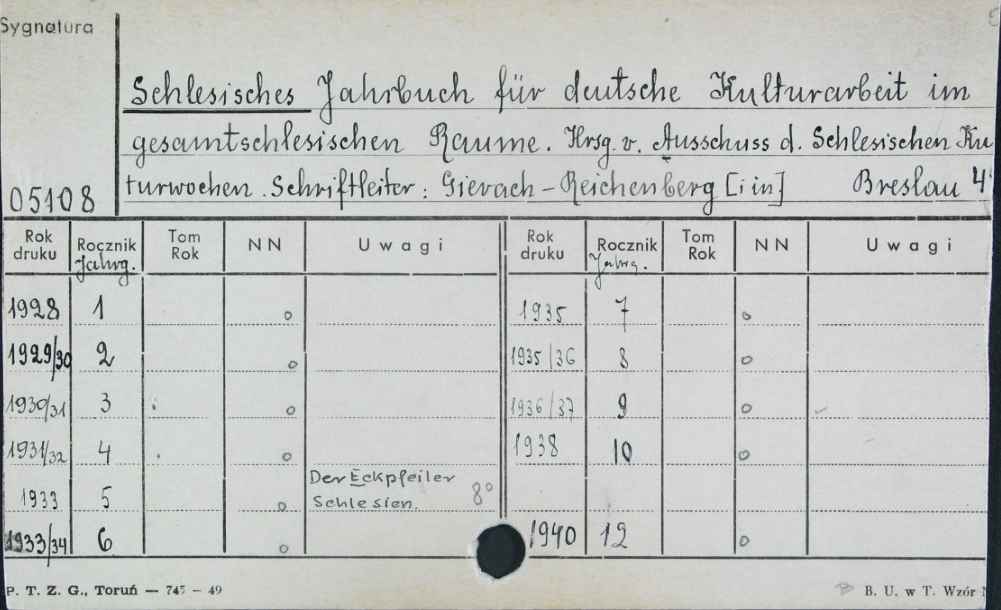 Sygnatura
Schlesisches Jahrbuch für deutsche Kulturarbeit im
gesamtschlesischen Raume. Hrsg. v. Ausschuss d. Schlesischen Ku
turwochen. Schriftleiter: Gierach-Reichenberg [i in] Breslau 4°
05108
Rok druku Rocznik Jahrg. Tom Rok NN Uwagi Rok druku Rocznik Jahrg. Tom Rok NN Uwagi
1928 1 o 1935 7 o
1929/30 2 o 1935/36 8 o
1930/31 3 o 1936/37 9 o
1931/32 4 o 1938 10 o
1933 5 o Der Eckpfeiler Schlesien. 8°
1933/34 6 o 1940 12 o
P. T. Z. G., Toruń — 745 — 49 B. U. w T. Wzór